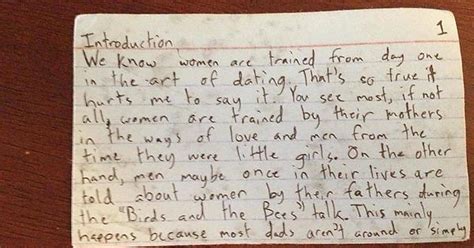 1
Introduction
We know women are trained from day one
in the art of dating. That's so true it
hurts me to say it. You see most, if not
all, women are trained by their mothers
in the ways of love and men from the
time they were little girls. On the other
hand, men maybe once in their lives are
told about women by their fathers during
the "Birds and the Bees" talk. This mainly
happens because most dads aren't around or simply